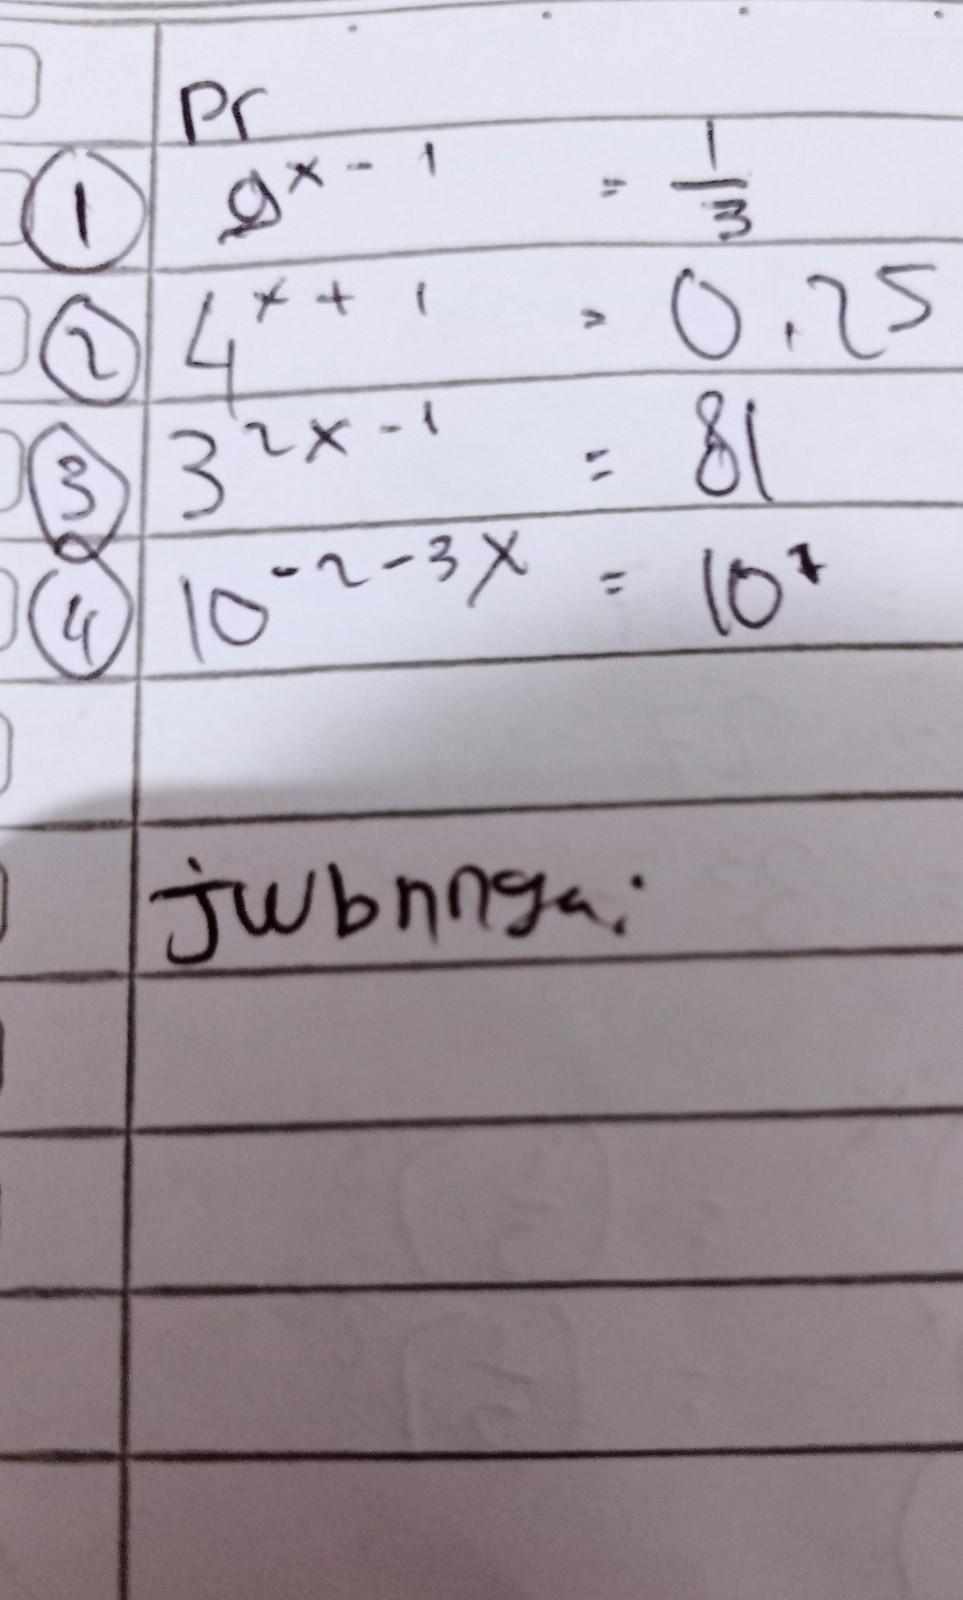 Pr
① 9^x - 1 = 1/3
② 4^x + 1 = 0.25
③ 3^2x - 1 = 81
④ 10^-2 - 3x = 10
jwbnnga: